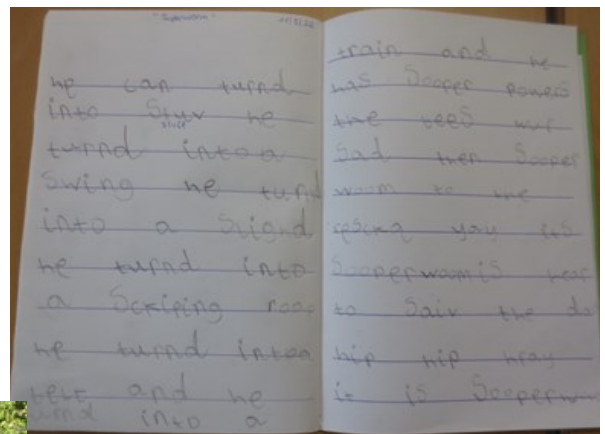 "Superworm"
he can turnd
into Stuv he
stuff
turnd into a
Swing he turnd
into a Slighd
he turnd into
a Sckiping
he turnd into a
belt and he
turnd into a
train and he
has Sooper powers
the bees wur
Sad then Sooper
woom to the
yay its
Sooperwoom is hear
to Saiv the da
hip hip hray
it is Sooperw